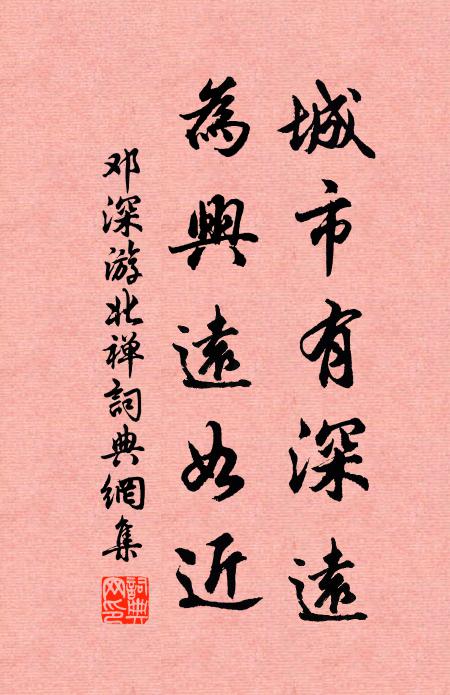 城市有深遠
為興遠如近
邓深游北禅詞典網集
詞典网印